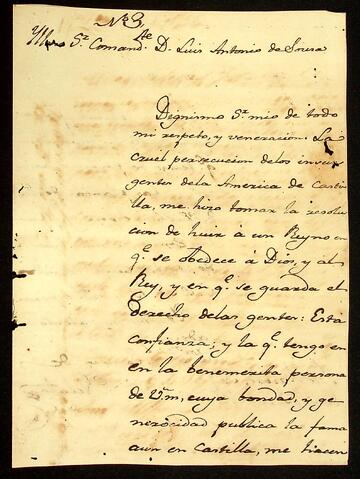 N.º 3
Yllmo Sr. Comand.te D. Luis Antonio de Sousa
Dignismo Sr. mio de todo
mi respeto, y veneracion. La
cruel persecucion delos insur
gentes dela America de Casti
lla, me hizo tomar la resolu
cion de huir à un Reyno en
q.e se obedece à Dios, y al
Rey, y en q.e se guarda el
derecho delas gentes: Esta
confianza; y la q.e tengo en
en la benemerita persona
de Vm, cuya bondad, y ge
nerocidad publica la fama
aun en Castilla, me hacen